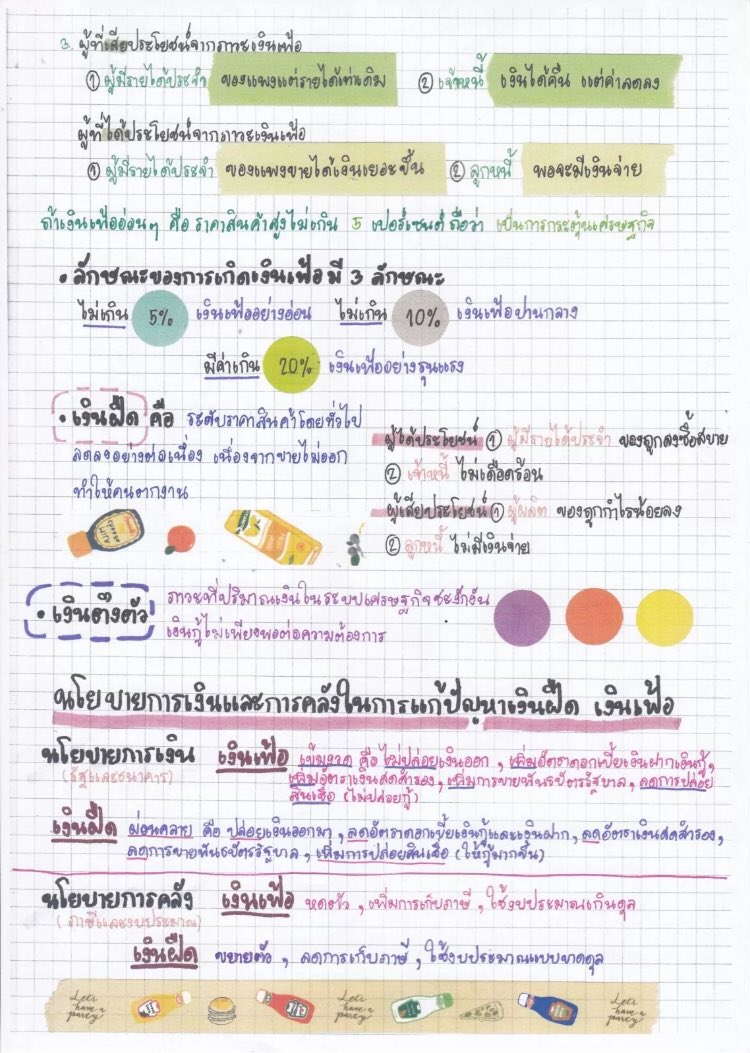 3. ผู้ที่เสียประโยชน์จากภาวะเงินเฟ้อ
① ผู้มีรายได้ประจำ ของแพงแต่รายได้เท่าเดิม ② เจ้าหนี้ เงินได้คืน แต่ค่าลดลง
ผู้ที่ได้ประโยชน์จากภาวะเงินเฟ้อ
① ผู้มีรายได้ประจำ ของแพงขายได้เงินเยอะขึ้น ② ลูกหนี้ พอจะมีเงินจ่าย
ถ้าเงินเฟ้ออ่อนๆ คือ ราคาสินค้าสูงไม่เกิน 5 เปอร์เซนต์ ถือว่า เป็นการกระตุ้นเศรษฐกิจ
• ลักษณะของการเกิดเงินเฟ้อ มี 3 ลักษณะ
ไม่เกิน 5% เงินเฟ้ออย่างอ่อน ไม่เกิน 10% เงินเฟ้อปานกลาง
มีค่าเกิน 20% เงินเฟ้ออย่างรุนแรง
• เงินฝืด คือ ระดับราคาสินค้าโดยทั่วไป
ลดลงอย่างต่อเนื่อง เนื่องจากขายไม่ออก
ทำให้คนตกงาน
ผู้ได้ประโยชน์ ① ผู้มีรายได้ประจำ ของถูกลงซื้อสบาย
② เจ้าหนี้ ไม่เดือดร้อน
ผู้เสียประโยชน์ ① ผู้ผลิต ของถูกกำไรน้อยลง
② ลูกหนี้ ไม่มีเงินจ่าย
• เงินตึงตัว ภาวะที่ปริมาณเงินในระบบเศรษฐกิจชะงักงัน
เงินกู้ไม่เพียงพอต่อความต้องการ
นโยบายการเงินและการคลังในการแก้ปัญหาเงินฝืด เงินเฟ้อ
นโยบายการเงิน เงินเฟ้อ เข้มงวด คือ ไม่ปล่อยเงินออก , เพิ่มอัตราดอกเบี้ยเงินฝากเงินกู้,
(รัฐและธนาคาร) เพิ่มอัตราเงินสดสำรอง, เพิ่มการขายพันธบัตรรัฐบาล, ลดการปล่อย
สินเชื่อ (ไม่ปล่อยกู้)
เงินฝืด ผ่อนคลาย คือ ปล่อยเงินออกมา , ลดอัตราดอกเบี้ยเงินกู้และเงินฝาก, ลดอัตราเงินสดสำรอง,
ลดการขายพันธบัตรรัฐบาล, เพิ่มการปล่อยสินเชื่อ (ให้กู้มากขึ้น)
นโยบายการคลัง เงินเฟ้อ หดตัว , เพิ่มการเก็บภาษี , ใช้งบประมาณเกินดุล
(ภาษีและงบประมาณ)
เงินฝืด ขยายตัว , ลดการเก็บภาษี , ใช้งบประมาณแบบขาดดุล
Let's have a party Let's have a party Let's have a party